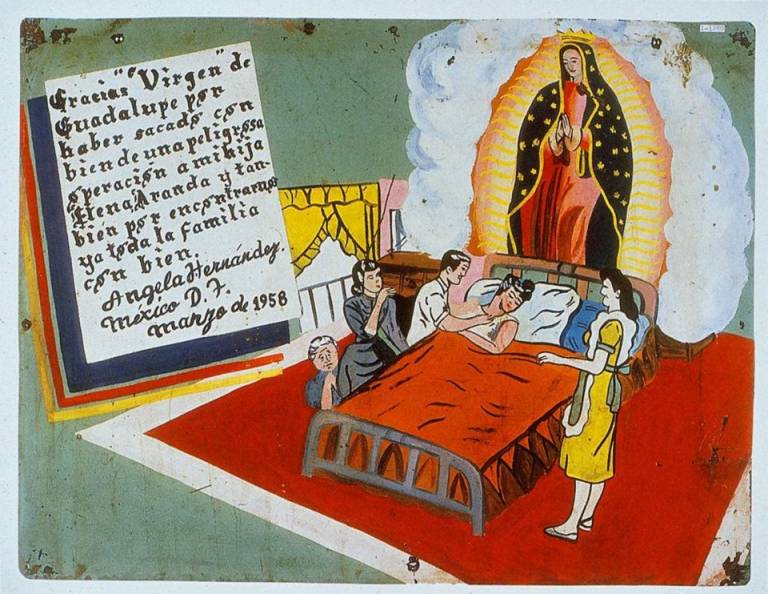 Gracias "Virgen" de
Guadalupe por
haber sacado con
bien de una peligrosa
operación a mi hija
Elena Aranda y tan-
bien por encontrarnos
ya toda la familia
con bien.
Angela Hernández.
México D. F.
marzo de 1958